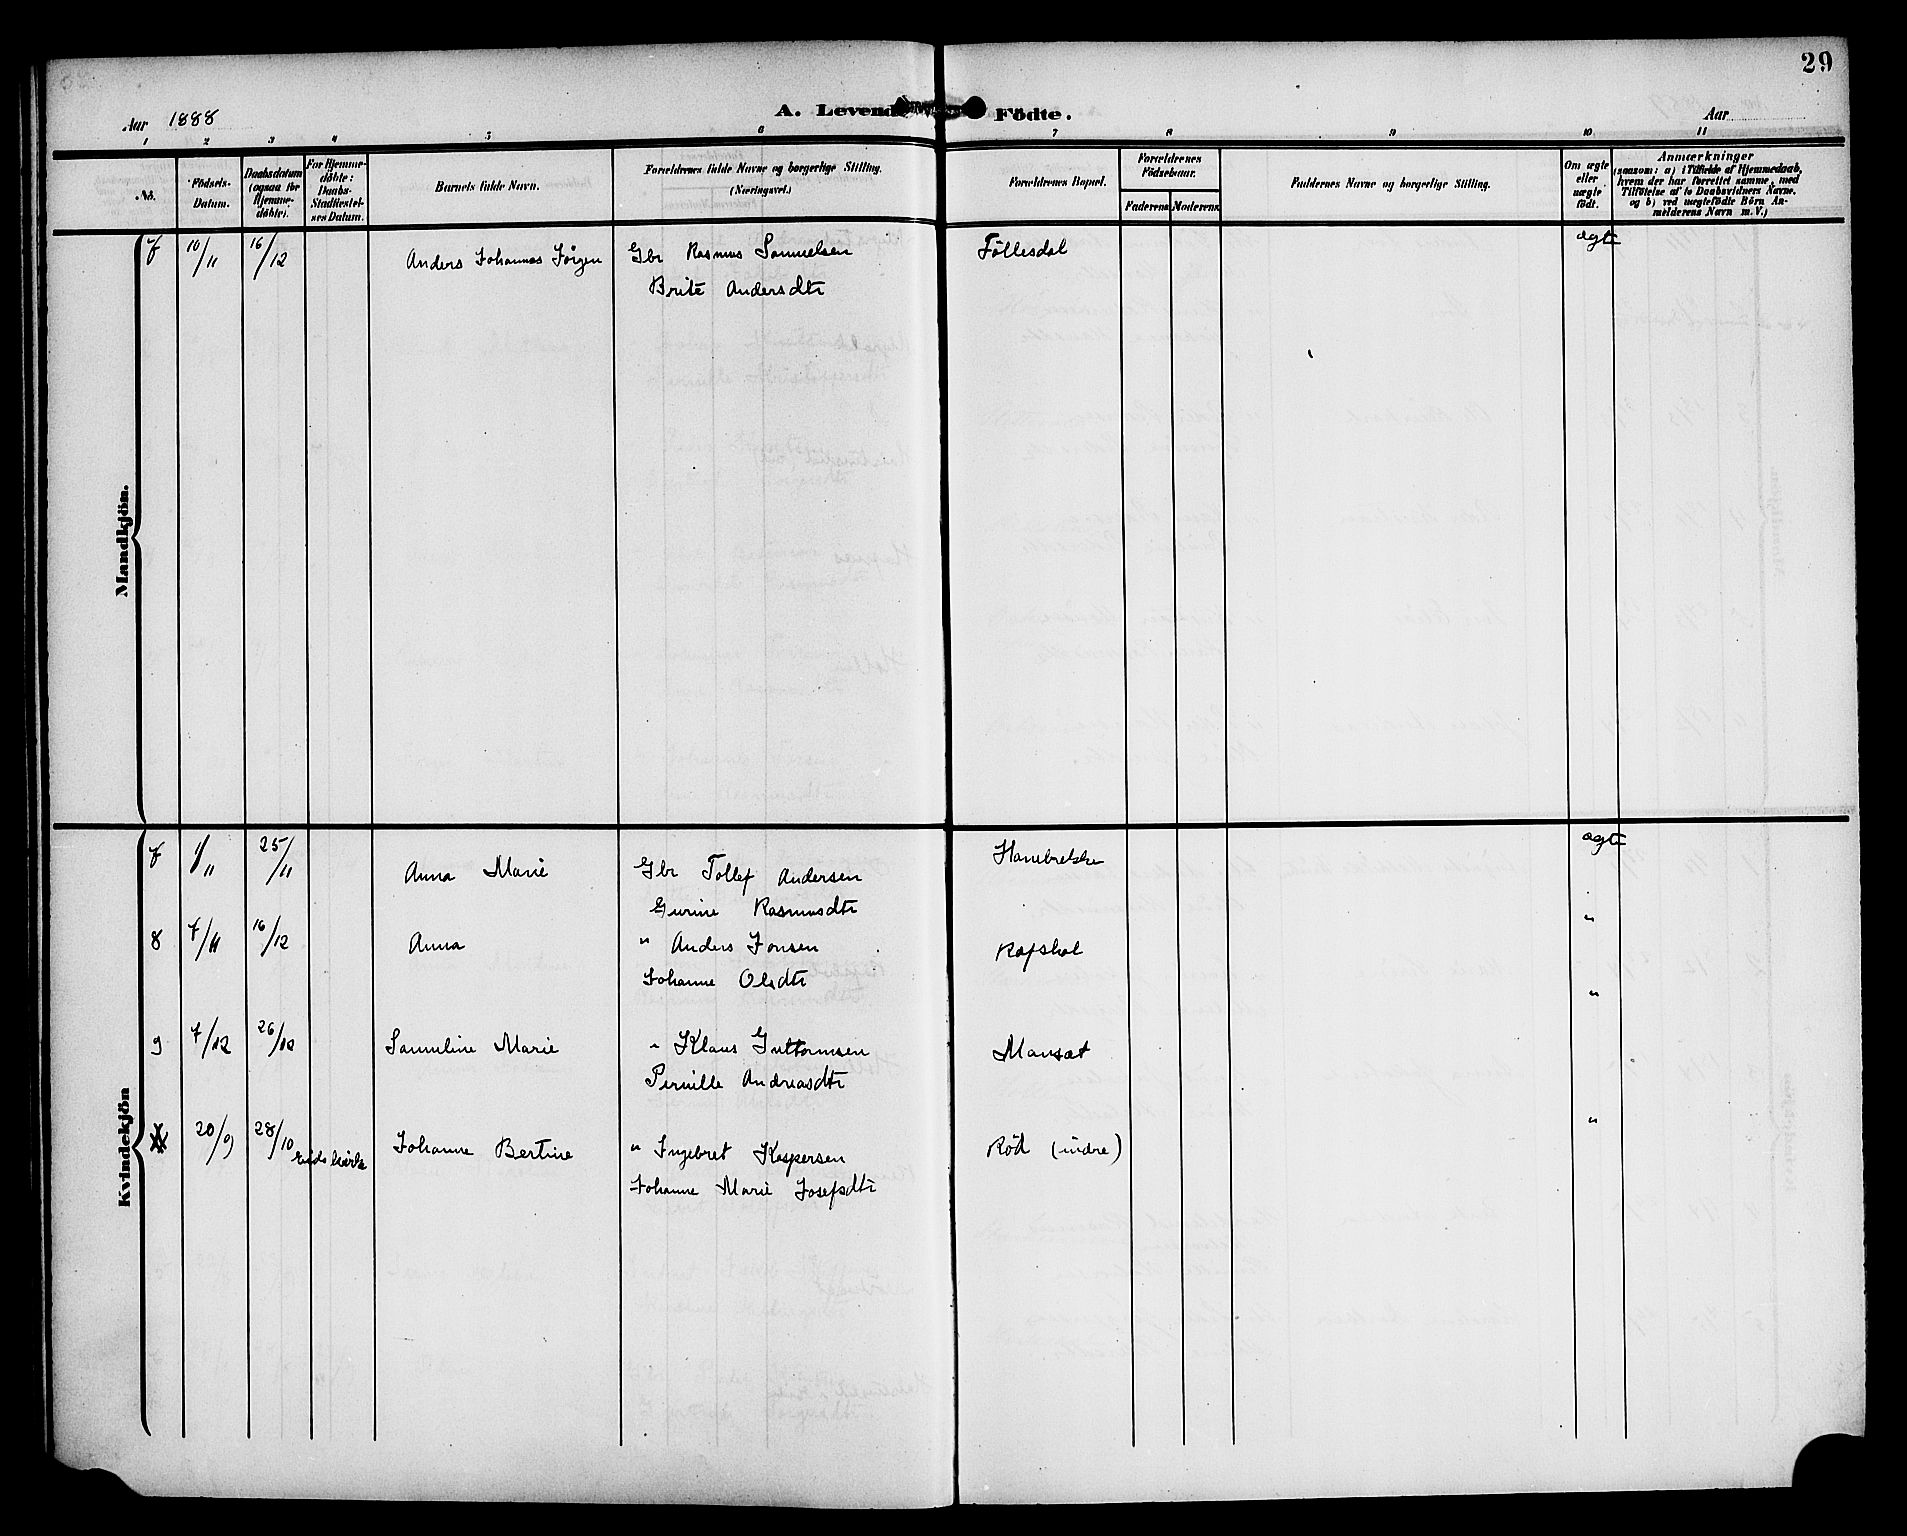 29
Aar 1888
A. Levende Födte.
Aar
1 2 3 4 5 6 7 8 9 10 11
No.
Födsels-Datum.
Daabsdatum (ogsaa for Hjemme-döbte).
For Hjemme-döbte: Daabs-Stadfæstel-ses Datum.
Barnets fulde Navn.
Forældrenes fulde Navne og borgerlige Stilling. (Næringsvei.)
Forældrenes Bopæl.
Forældrenes Födselsaar.
Faderens
Moderens
Faddernes Navne og borgerlige Stilling.
Om ægte eller uægte födt.
Anmærkninger
(saasom: a) i Tilfælde af Hjemmedaab,
hvem der har forrettet samme, med
Tilföielse af to Daabsvidners Navne.
og b) ved uægtefödte Börn An-
melderens Navn m. V.)
Mandkjön.
7 10/11 16/12 Anders Johannes Jörgen Gbr Rasmus Samuelsen Föllesdal ægte
Brite Andersdtr
Kvindekjön
7 1/11 25/11 Anna Marie Gbr Tollef Andersen ægte
Gurine Rasmusdtr
8 7/11 16/12 Anna " Anders Jonsen Ræfskol "
Johanne Olsdtr
9 7/12 26/12 Samuline Marie " Klaus Guttormsen Mansæt "
Pernille Andreasdtr
20/9 28/10 Johanne Bertine " Ingebret Kaspersen Röd (indre) "
Johanne Marie Josefsdtr